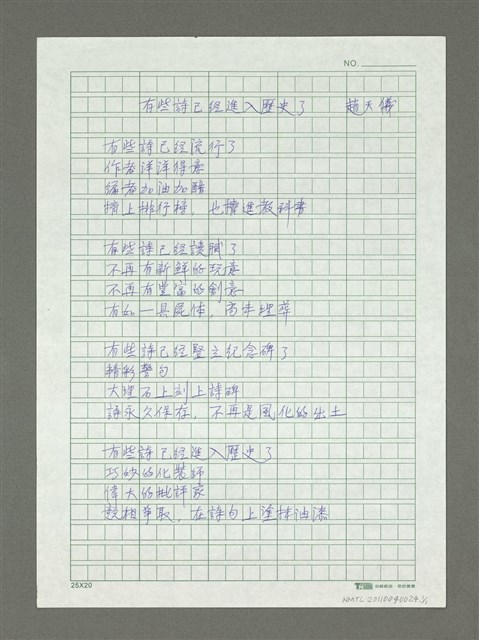 NO.
有些詩已經進入歷史了 趙天儀
有些詩已經流行了
作者洋洋得意
編者加油加醋
擠上排行榜，也擠進教科書
有些詩已經讀膩了
不再有新鮮的玩意
不再有豐富的創意
有如一具屍体，尚未埋葬
有些詩已經豎立紀念碑了
精彩警句
大理石上刻上詩碑
請永久保存，不再是風化的出土
有些詩已經進入歷史了
巧妙的化裝師
偉大的批評家
競相爭取，在詩句上塗抹油漆
25X20
NMTL 20110040024